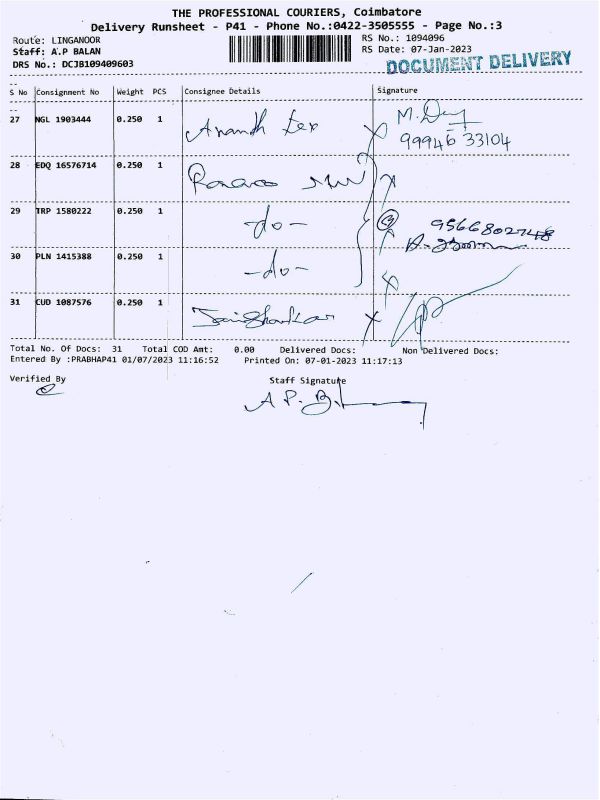 THE PROFESSIONAL COURIERS, Coimbatore
Delivery Runsheet - P41 - Phone No.:0422-3505555 - Page No.:3
Route: LINGANOOR RS No.: 1094096
Staff: A.P BALAN RS Date: 07-Jan-2023
DRS No.: DCJB109409603 DOCUMENT DELIVERY
S No Consignment No Weight PCS Consignee Details Signature
27 NGL 1903444 0.250 1 Ananth Tex M.
99946 33104
28 EDQ 16576714 0.250 1
29 TRP 1580222 0.250 1 -do- 3
30 PLN 1415388 0.250 1 -do-
31 CUD 1087576 0.250 1 Jaishankar
Total No. Of Docs: 31 Total COD Amt: 0.00 Delivered Docs: Non Delivered Docs:
Entered By :PRABHAP41 01/07/2023 11:16:52 Printed On: 07-01-2023 11:17:13
Verified By Staff Signature
A P. B